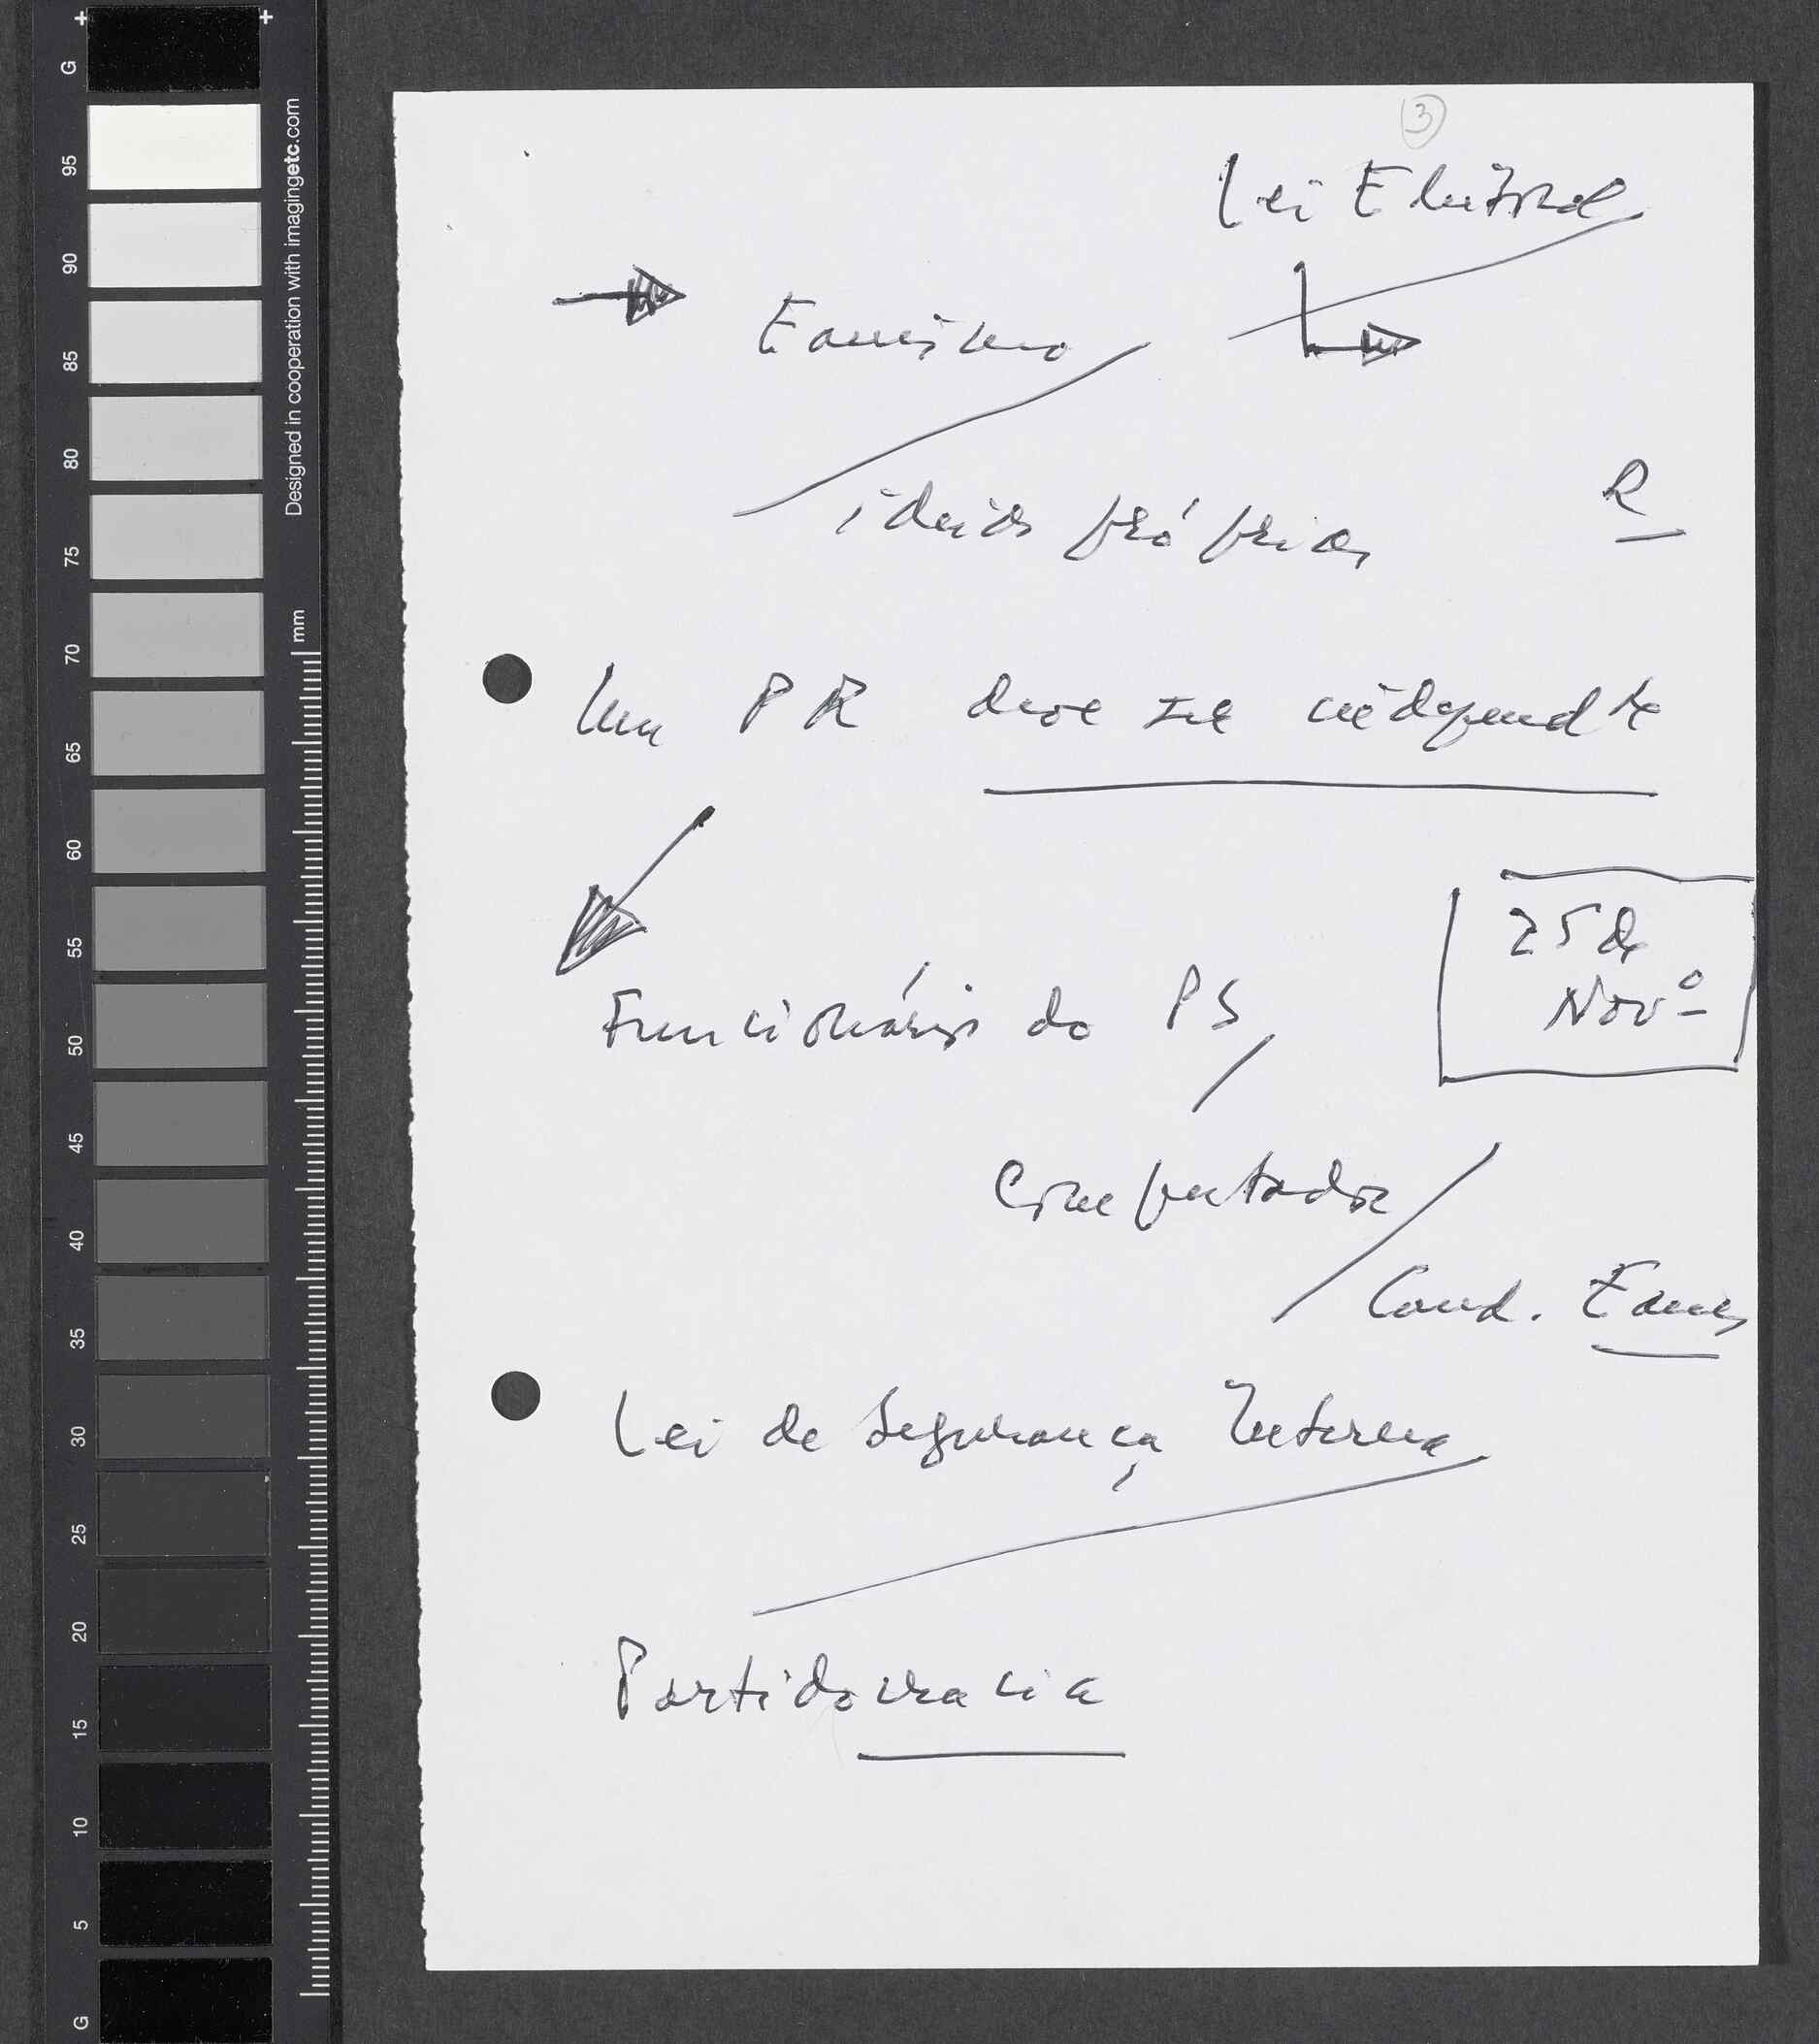 3
Lei Eleitoral
Eanismo
ideias próprias
R
Um PR deve ser independte
25 de
Novº
Funcionários do PS
Computador
Cand. Eanes
Lei de Segurança Interna
Partidocracia
G
95
90
85
80
75
70
65
60
55
50
45
40
35
30
25
20
15
10
5
G
Designed in cooperation with imagingetc.com
mm